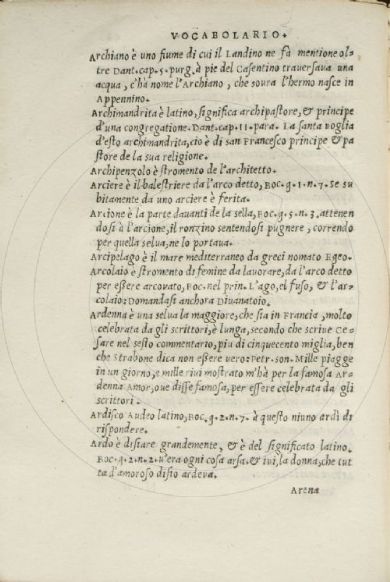 VOCABOLARIO.
Archiano è uno fiume di cui il Landino ne fà mentione ol-
tre Dant. cap. 5. purg. à pie del Casentino traversava una
acqua, c'hà nome l'Archiano, che soura l'hermo nasce in
Appennino.
Archimandrità è latino, significa archipastore, & principe
d'una congregatione. Dant. cap. 11. para. La santa voglia
d'esto archimandrita, cio è di san Francesco principe & pa
store de la sua religione.
Archipenzolo è stromento de l'architetto.
Arciere è il balestriere da l'arco detto, Boc. g. 1. n. 7. Se su
bitamente da uno arciere è ferita.
Arcione è la parte davanti de la sella, Boc. g. 5. n. 3. attenen
dosi à l'arcione, il ronzino sentendosi pugnere, correndo
per quella selua, ne lo portaua.
Arcipelago è il mare mediterraneo da greci nomato Egeo.
Arcolaio è stromento di femine da lauorare, da l'arco detto
per essere arcovato, Boc. nel prin. L'ago, el fuso, & l'ar-
colaio: Domandasi anchora Diuanatoio.
Ardenna è una selua la maggiore, che sia in Francia, molto
celebrata da gli scrittori, è lunga, secondo che scriue Ce-
sare nel sesto commentario, piu di cinquecento miglia, ben
che Strabone dica non essere vero: Petr. son. Mille piagge
in un giorno, e mille riui mostrato m'hà per la famosa Ar-
denna Amor, oue disse famosa, per essere celebrata da gli
scrittori.
Ardisco Audeo latino, Boc. g. 2. n. 7. à questo niuno ardì di
rispondere.
Ardo è disiare grandemente, & è del significato latino.
Boc. g. 2. n. 2. v'era ogni cosa arsa. & ivi, la donna, che tut
ta d'amoroso disio ardeva.
Arena